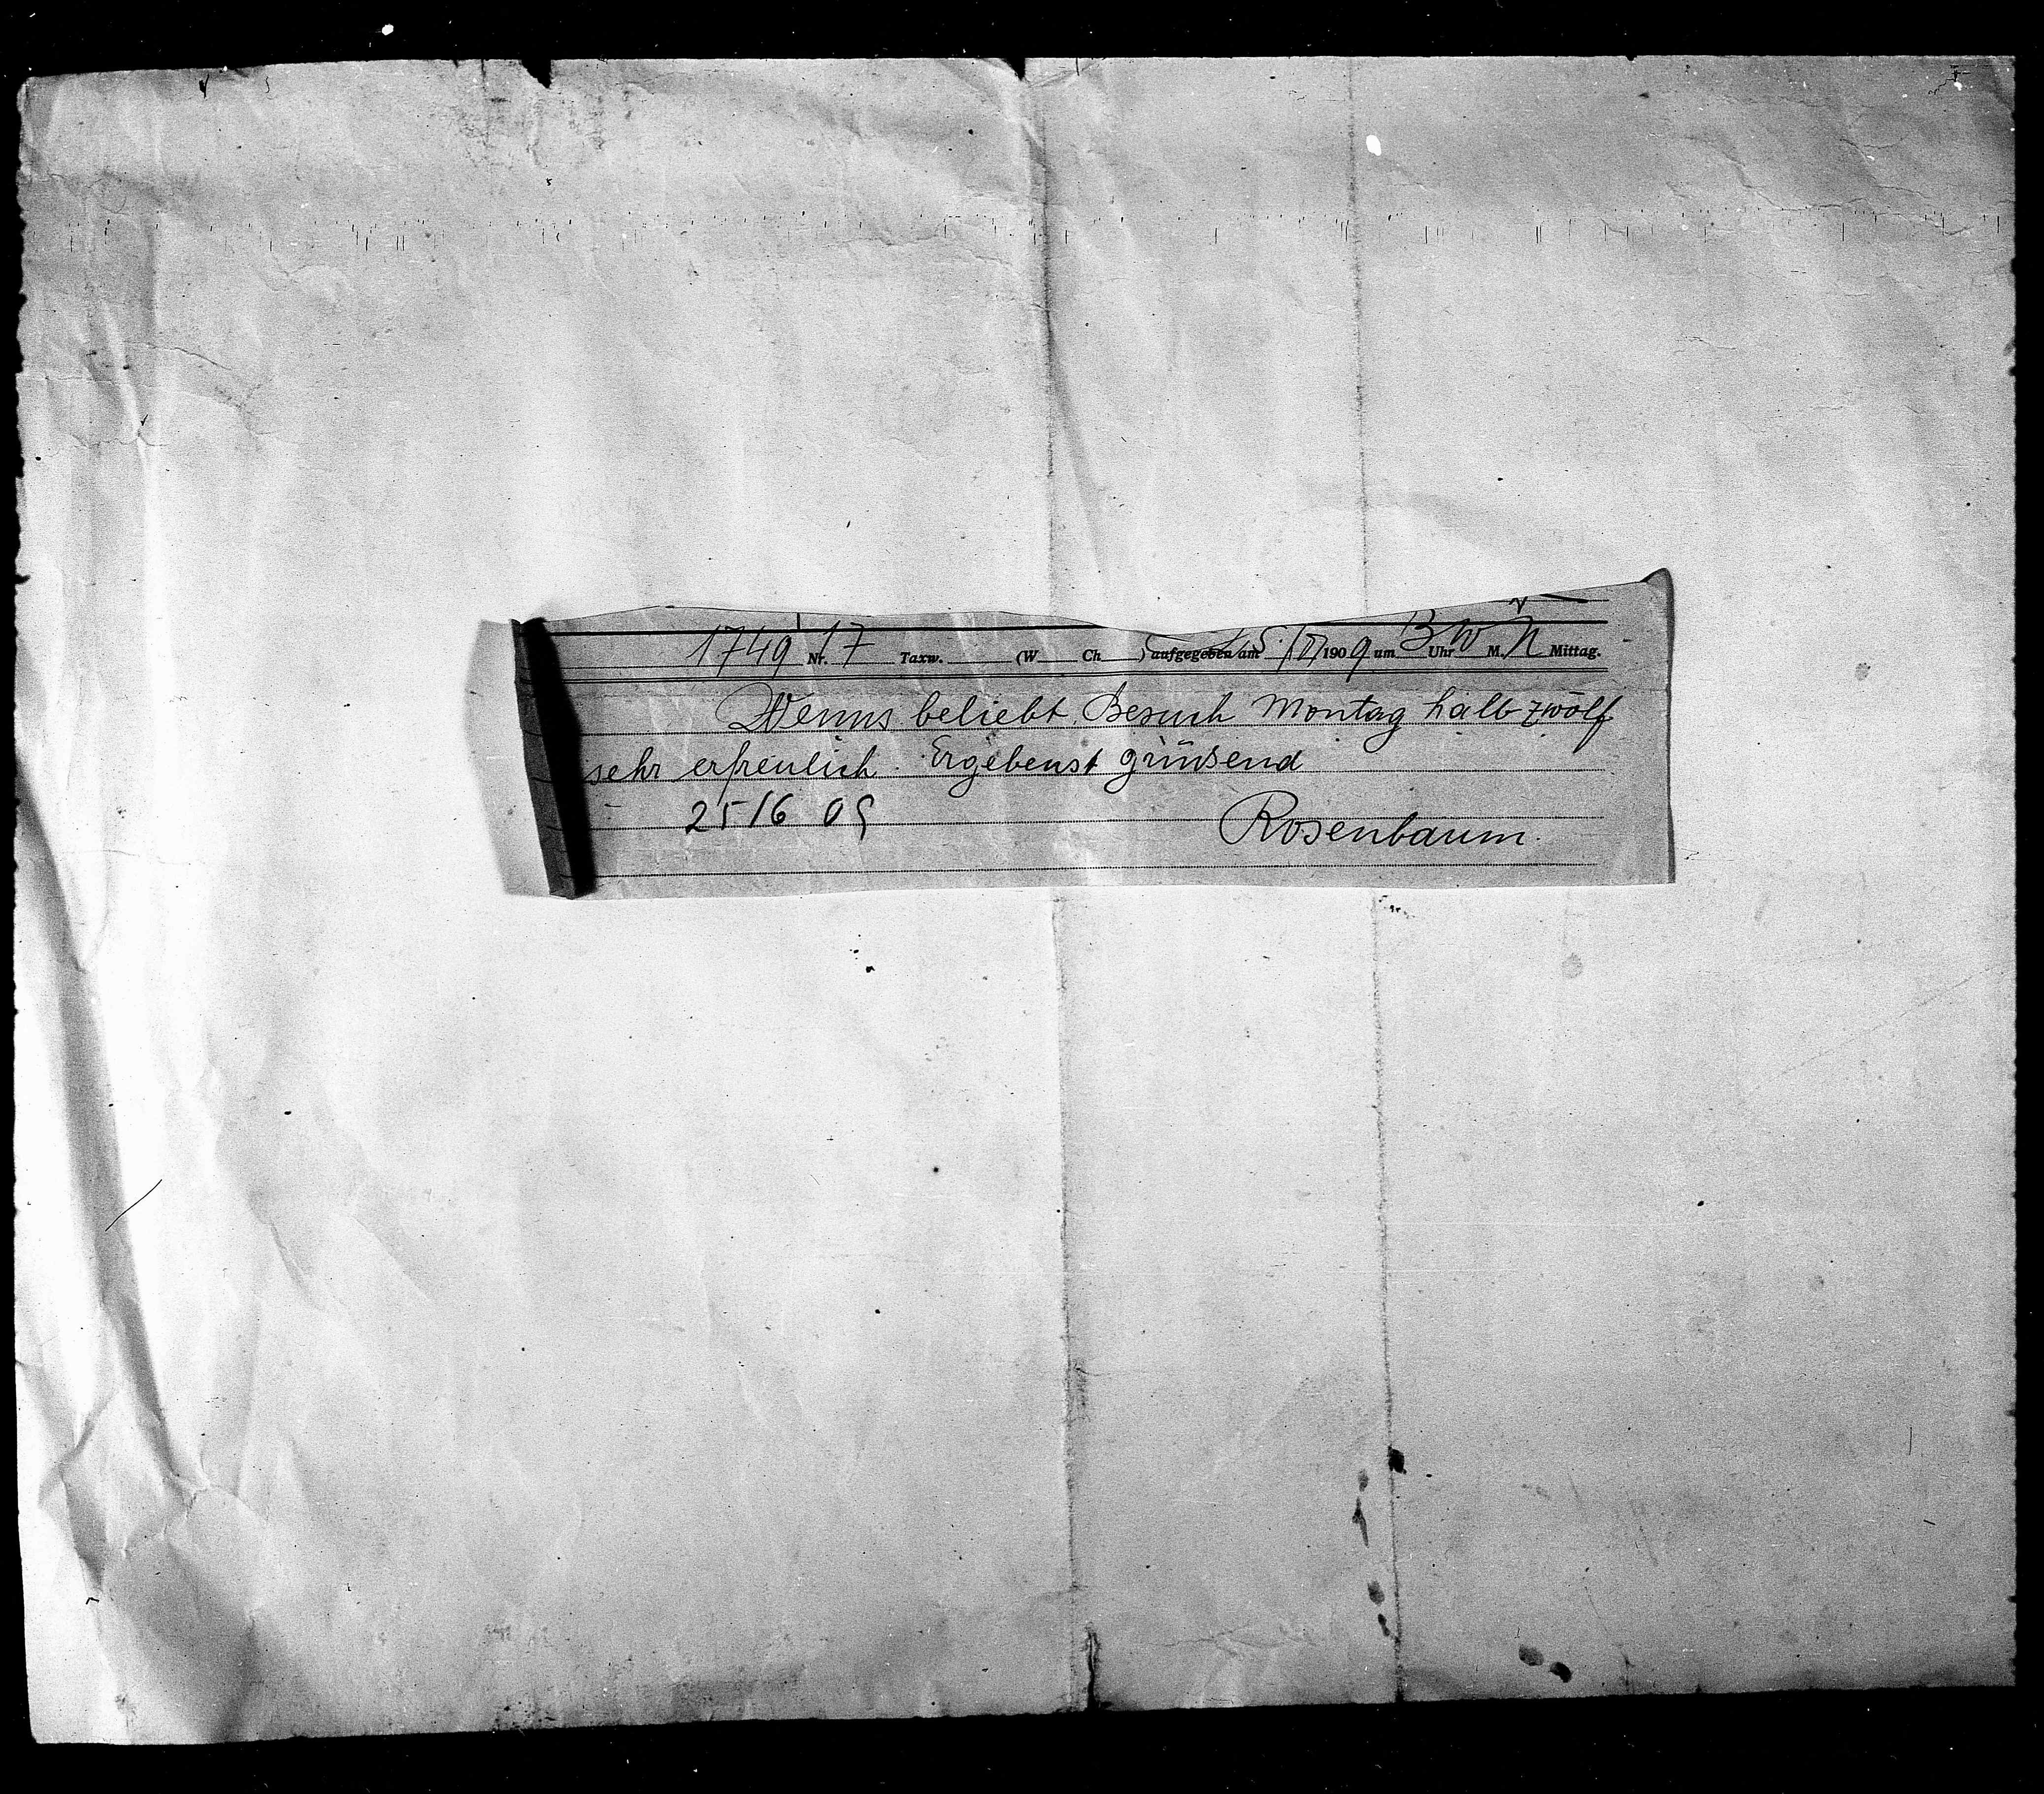 1749 Nr. 17 Taxw. (W Ch ) aufgegeben am 25. 1909 um 3 Uhr M. N Mittag.
Wenns beliebt Besuch Montag halb zwölf
sehr erfreulich. Ergebenst grüßend
25/6 09
Rosenbaum.